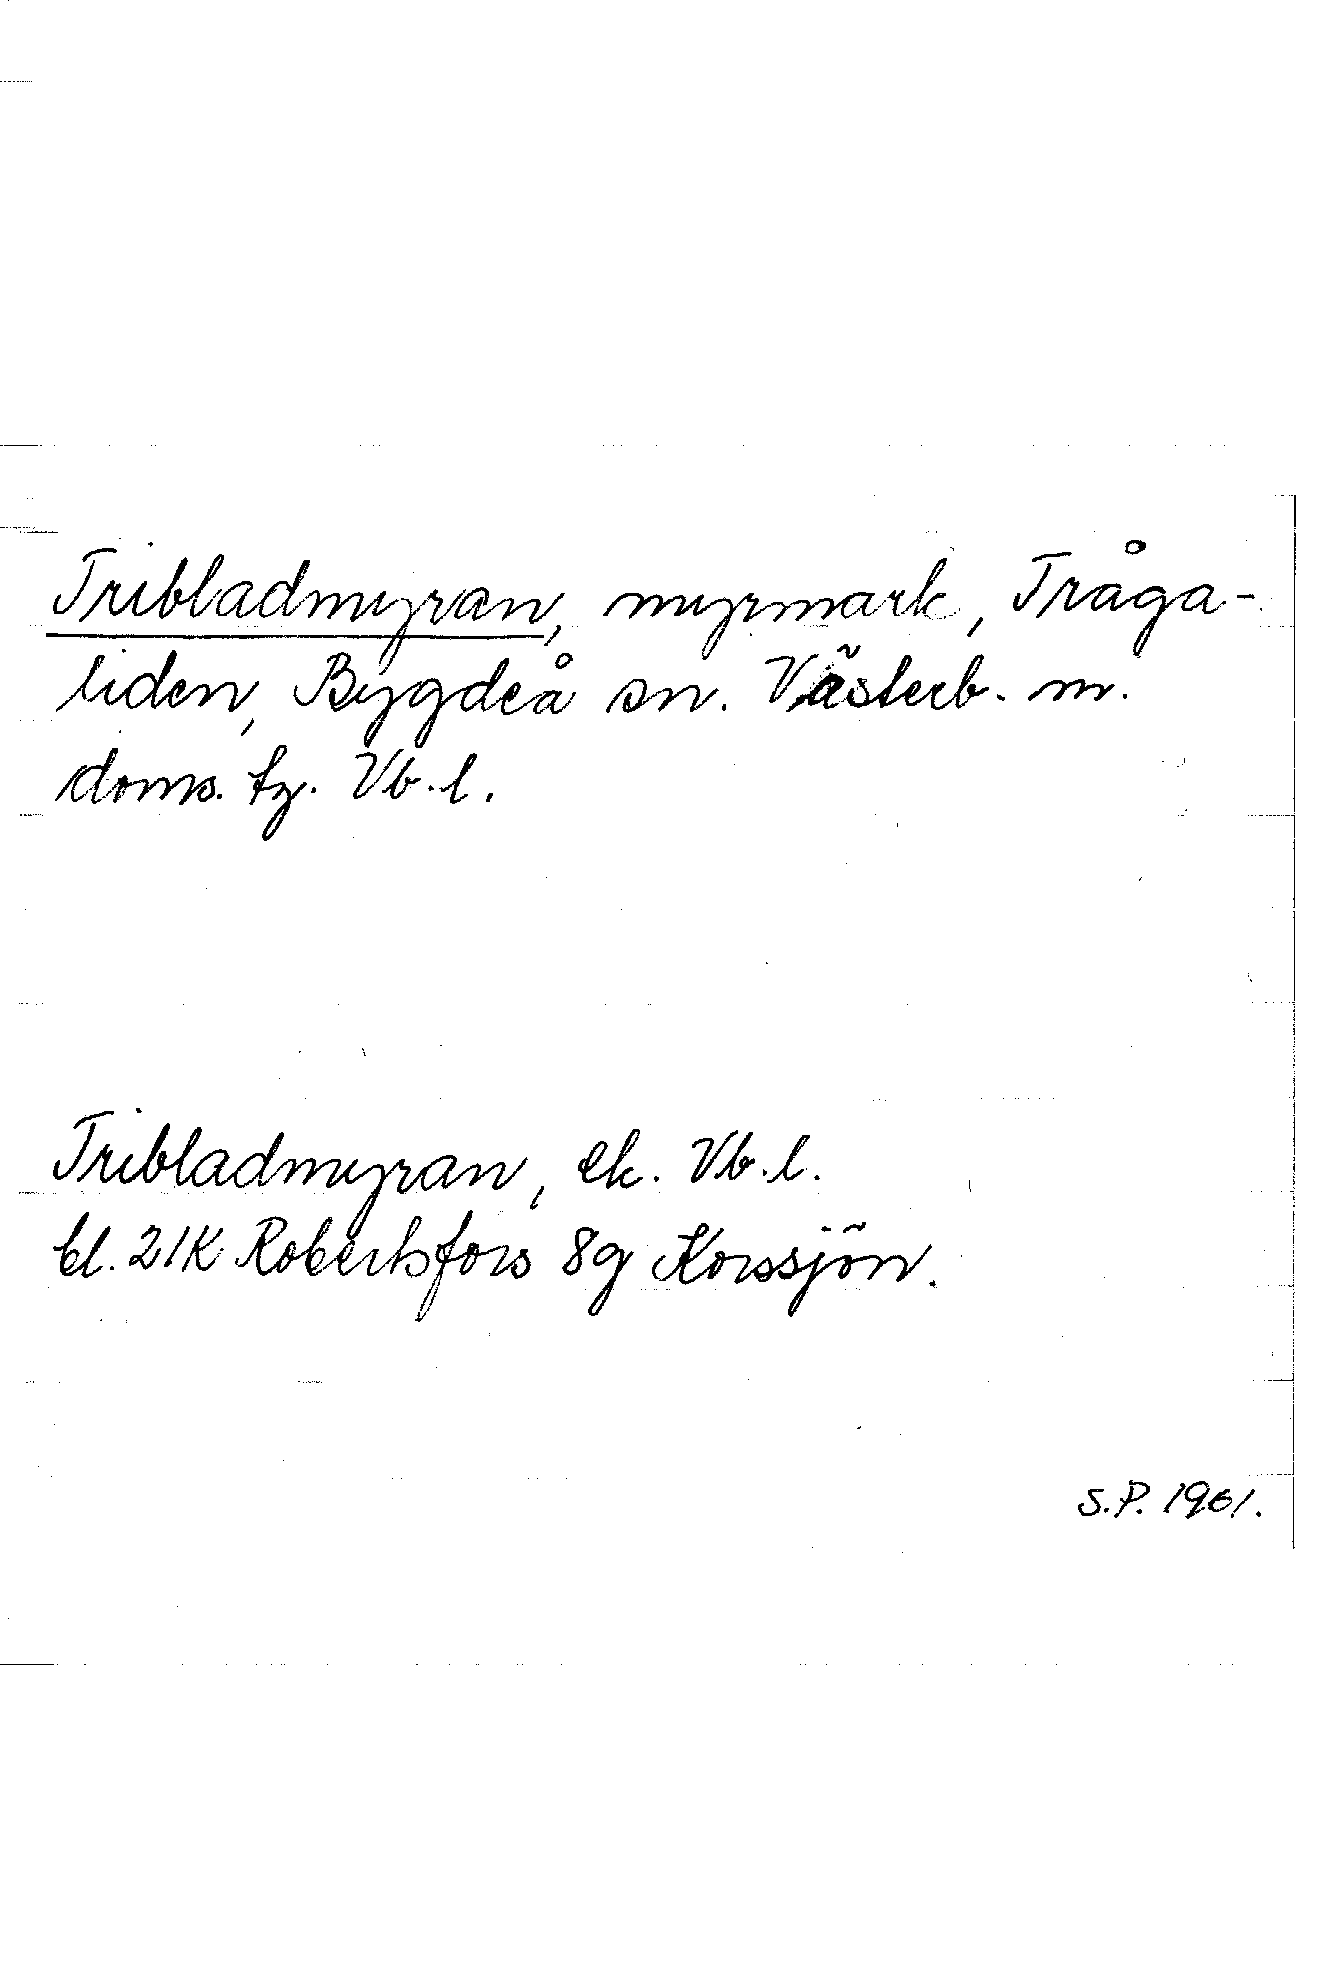 Tribladmyran, myrmark, Tråga-
liden, Bygdeå sn. Västerb. m.
doms. tg. Vb. l.
Tribladmyran, ek. Vb. l.
bl. 21K Robertsfors 8g Korssjön.
S.P. 1961.